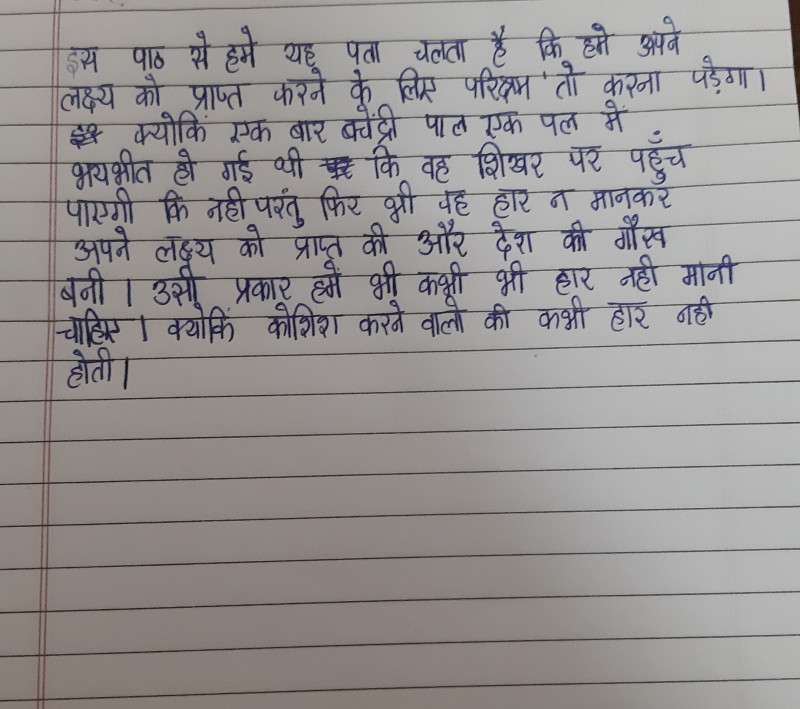 इस पाठ से हमे यह पता चलता है कि हमे अपने
लक्ष्य को प्राप्त करने के लिए परिक्षम तो करना पड़ेगा।
क्योकिं एक बार बचेंद्री पाल एक पल में
भयभीत हो गई थी कि वह शिखर पर पहुँच
पाएगी कि नही परंतु फिर भी वह हार न मानकर
अपने लक्ष्य को प्राप्त की और देश की गौरव
बनी। उसी प्रकार हमें भी कभी भी हार नही मानी
चाहिए। क्योकिं कोशिश करने वालो की कभी हार नही
होती।